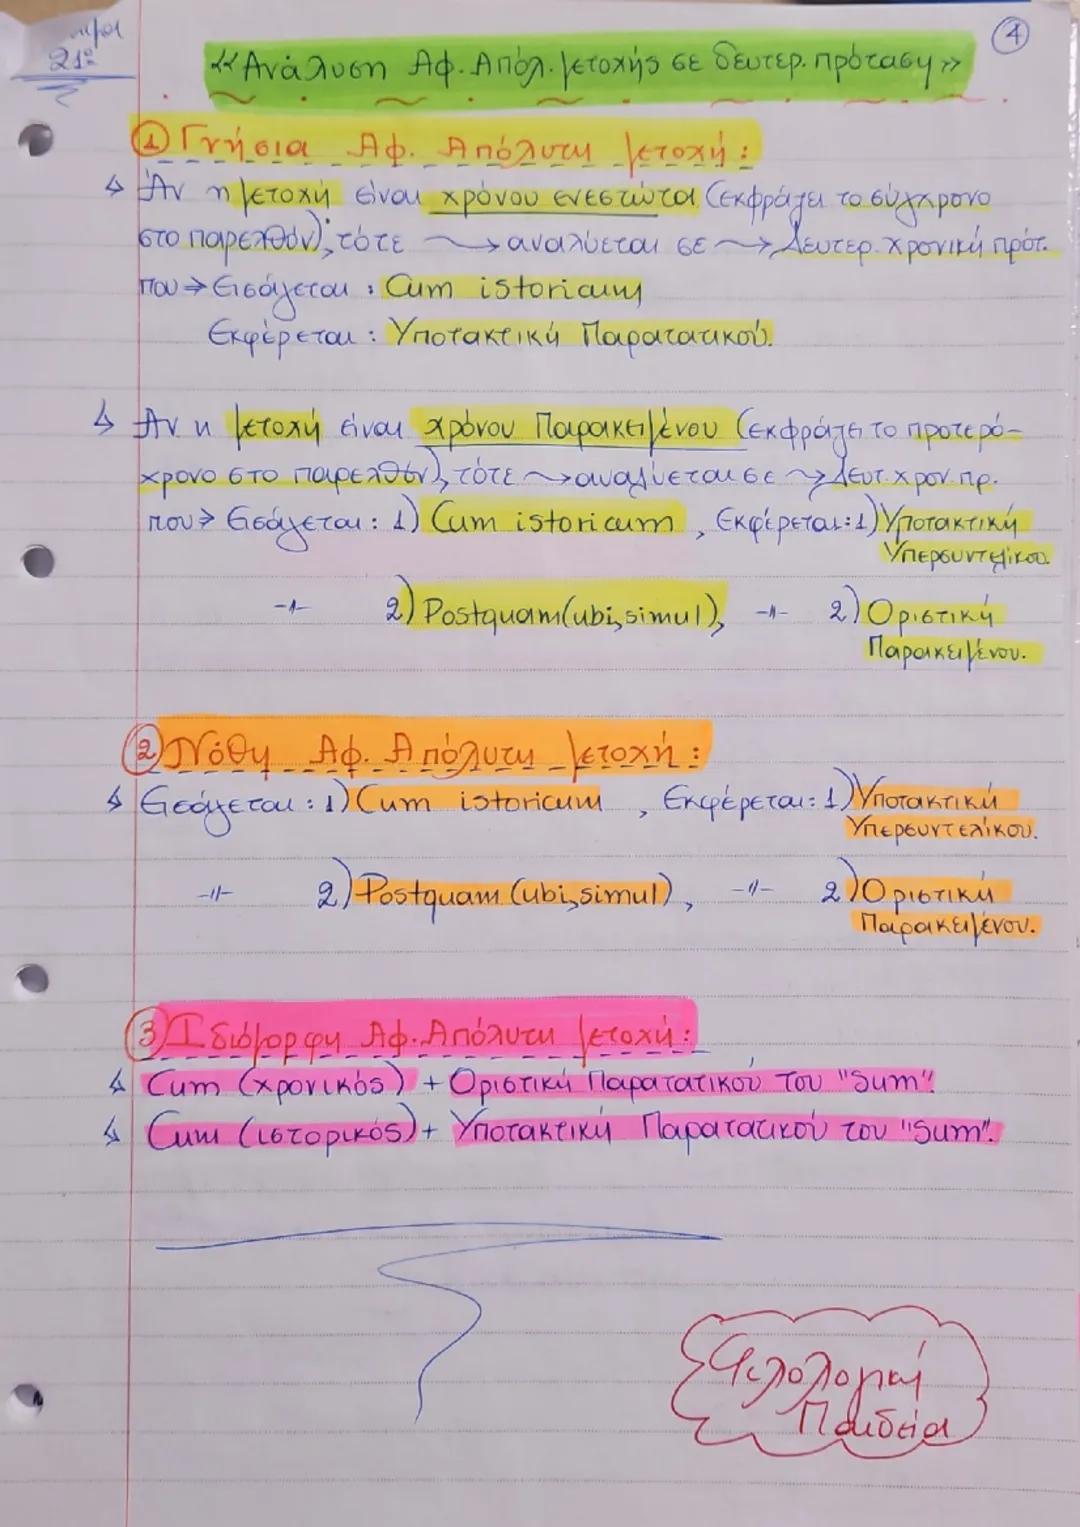 21ο
4
«Ανάλυση Αφ. Απόλ. μετοχής σε δευτερ. πρόταση»
1 Γνήσια Αφ. Απόλυτη μετοχή:
Αν η μετοχή είναι χρόνου ενεστώτα (εκφράζει το σύγχρονο
στο παρελθόν), τότε → αναλύεται σε → Δευτερ. χρονική πρότ.
που → Εισάγεται: Cum istoricum
Εκφέρεται: Υποτακτική Παρατατικού.
Αν η μετοχή είναι χρόνου Παρακειμένου (εκφράζει το προτερό-
χρονο στο παρελθόν), τότε → αναλύεται σε → Δευτ. χρον. πρ.
που → Εισάγεται: 1) Cum istoricum, Εκφέρεται: 1) Υποτακτική
Υπερσυντελίκου.
-//- 2) Postquam (ubi, simul), -//- 2) Οριστική
Παρακειμένου.
2 Νόθη Αφ. Απόλυτη μετοχή:
Εισάγεται: 1) Cum istoricum, Εκφέρεται: 1) Υποτακτική
Υπερσυντελίκου.
-//- 2) Postquam (ubi, simul), -//- 2) Οριστική
Παρακειμένου.
3 Ιδιόμορφη Αφ. Απόλυτη μετοχή:
Cum (χρονικός) + Οριστική Παρατατικού του "Sum".
Cum (ιστορικός) + Υποτακτική Παρατατικού του "Sum".
Φιλολογική
Παιδεία